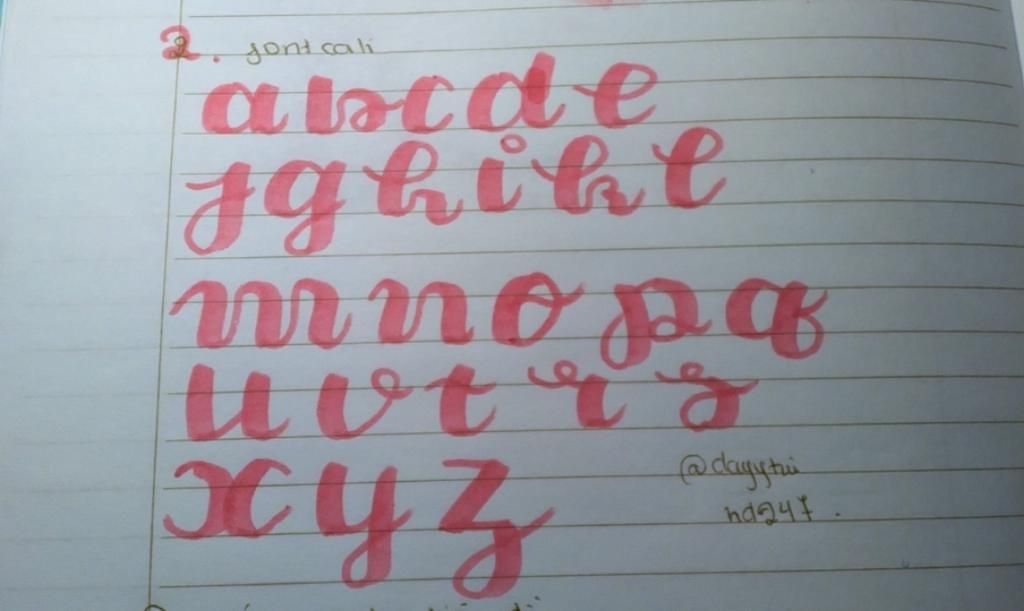 2. font cali
a b c d e
f g h i k l
m n o p q
u v t r s
x y z
nd247.